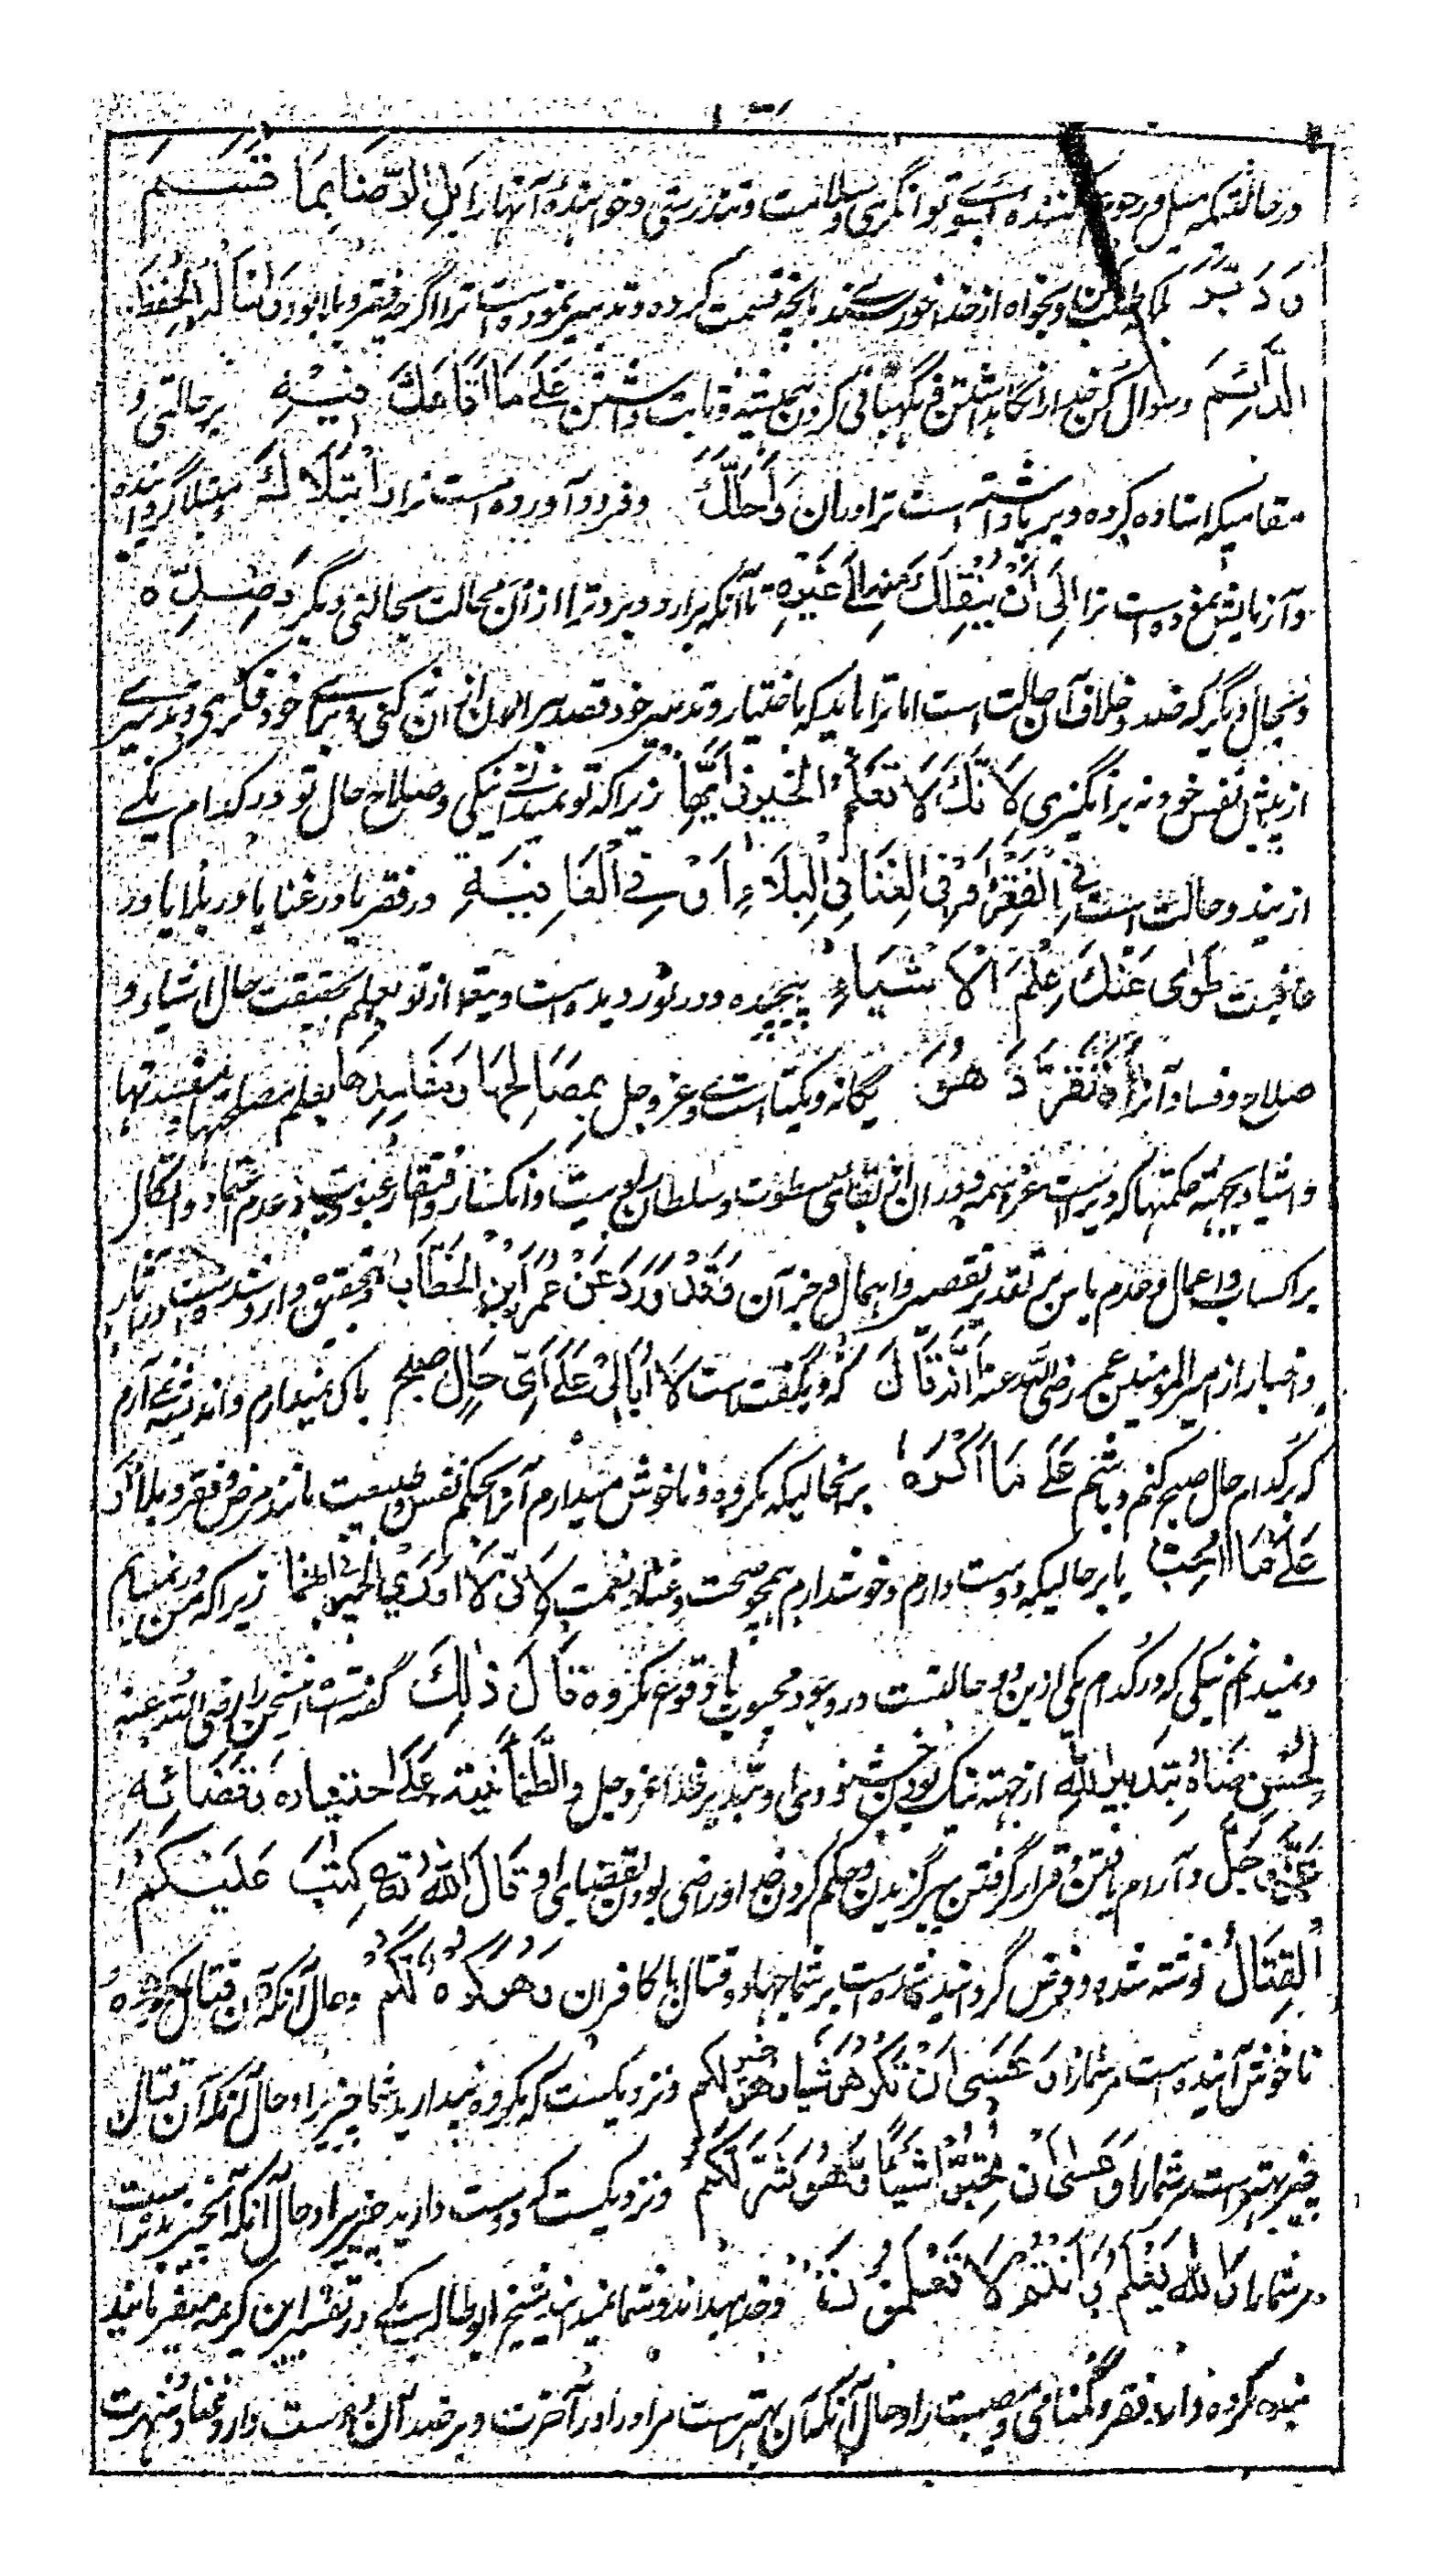 در حالتیکه میل و رجوع کننده است بسوی توانگری و سلامت و تندرستی و خواهنده آنها را بَلِ الرِّضَا بِمَا قَسَمَ
وَ دَبَّرَ بلکه طلب کن و بخواه از خدا خورسندی بانچه قسمت کرده و تدبیر نموده است ترا اگرچه فقر و بلا بود وَ اسْأَلْهُ الْحِفْظَ
الدَّائِمَ و سوال کن خدا را نگاهداشتن و نگهبانی کردن همیشه و ثابت داشتن عَلَى مَا أَقَامَكَ فِيْهِ بر حالتی و
مقامیکه استاده کرده و برپا داشته است ترا در آن وَ أَحَلَّكَ و فرود آورده است ترا وَ ابْتَلَاكَ مبتلا گردانیده
و آزمایش نموده است ترا إِلَى أَنْ يَنْقُلَكَ مِنْهُ إِلَى غَيْرِهِ تا آنکه بر آرد و ببرد ترا از آن حالت بحالتی دیگر وَ ضِدِّهِ
و بحال دیگر که ضد و خلاف آن حالت است اما ترا باید که باختیار و تدبیر خود قصد بر آمدن از آن نکنی و برای خود فکری و تدبیرے
از پیش نفس خود نه برانگیزی لِأَنَّكَ لَا تَعْلَمُ الْخَيْرَ فِي أَيِّهِمَا زیرا که تو نمیدانی نیکی و صلاح حال تو در کدام یکے
ازیند و حالت است فِي الْفَقْرِ أَوْ فِي الْغِنَا فِي الْبَلَاءِ أَوْ فِي الْعَافِيَةِ در فقر یا در غنا یا در بلا یا در
عافیت طَوٰى عَنْكَ عِلْمَ الْأَشْيَاءِ پیچیده و در نوردیده است و یتعالی از تو علم بحقیقت حال اشیاء و
صلاح و فساد آنرا وَ تَفَرَّدَ هُوَ یگانه و یکتا است وے عز و جل بِمَصَالِحِهَا وَ مَفَاسِدِهَا بعلم مصلحتها و مفسدتهای
و اشیاء بجهت حکمتها که ویراست عز اسمه در آن از ابقای سطوت و سلطان ربوبیت و انکسار و افتقار عبودیت و عدم اعتماد و اتکال
بر اکساب و اعمال و عدم یاس بر تقدیر تقصیر و اهمال و جز آن فَقَدْ وَرَدَ عَنْ عُمَرَ ابْنِ الْخَطَّابِ و بتحقیق وارد شده است در آثار
و اخبار از امیر المومنین عمر رضی الله عنه أَنَّهُ قَالَ که وی گفته است لَا أُبَالِي عَلَى أَيِّ حَالٍ أُصْبِحُ باک نمیدارم و اندیشه نمی آرم
که بر کدام حال صبح کنم و باشم عَلَى مَا أَكْرَهُ بر حالیکه مکروه و ناخوش میدارم آنرا بحکم نفس و طبیعت مانند مرض و فقر و بلا أَوْ
عَلَى مَا أُحِبُّ یا بر حالیکه دوست دارم و خوشدارم همچو صحت و غنا و نعمت لِأَنِّي لَا أَدْرِي الْخَيْرَ فِي أَيِّهِمَا زیرا که من در نمی یابم
و نمیدانم نیکی که در کدام یکی ازین دو حالتست در وجود محبوب یا وقوع مکروه قَالَ ذٰلِكَ گفته است این سخن را رضی الله عنه
لِحُسْنِ رِضَاهُ بِتَدْبِيرِ اللهِ از جهت نیک بودن خوشنودی وی و بتدبیر خدا عز و جل وَ الطُّمَأْنِيْنَةِ عَلَى اخْتِيَارِهِ وَ قَضَائِهِ
عَزَّ وَ جَلَّ و آرام یافتن و قرار گرفتن بر برگزیدن و حکم کردن خدا و راضی بودن بقضای او قَالَ اللهُ تَعَالَى كُتِبَ عَلَيْكُمُ
الْقِتَالُ نوشته شده و فرض گردانیده شده است بر شما جهاد و قتال با کافران وَ هُوَ كُرْهٌ لَكُمْ و حال آنکه آن قتال مکروه
ناخوش آینده است مر شما را وَ عَسَى أَنْ تَكْرَهُوا شَيْئًا وَ هُوَ خَيْرٌ لَكُمْ و نزدیکست که مکروه میدارید شما چیزی را و حال آنکه آن قتال
چیز بهتر است مر شما را وَ عَسَى أَنْ تُحِبُّوا شَيْئًا وَ هُوَ شَرٌّ لَكُمْ و نزدیکست که دوست دارید چیزیرا و حال آنکه آنچیز بدتر است
مر شما را وَ اللهُ يَعْلَمُ وَ أَنْتُمْ لَا تَعْلَمُونَ و خدا میداند و شما نمیدانید شیخ ابو طالب مکے در تفسیر این کریمه میفرمایند
بنده مکروه دارد فقر و گمنامی و مصیبت را و حال آنکه آن بهتر است مر او را در آخرت و بر ضد آن دوست دارد غنا و شهرت